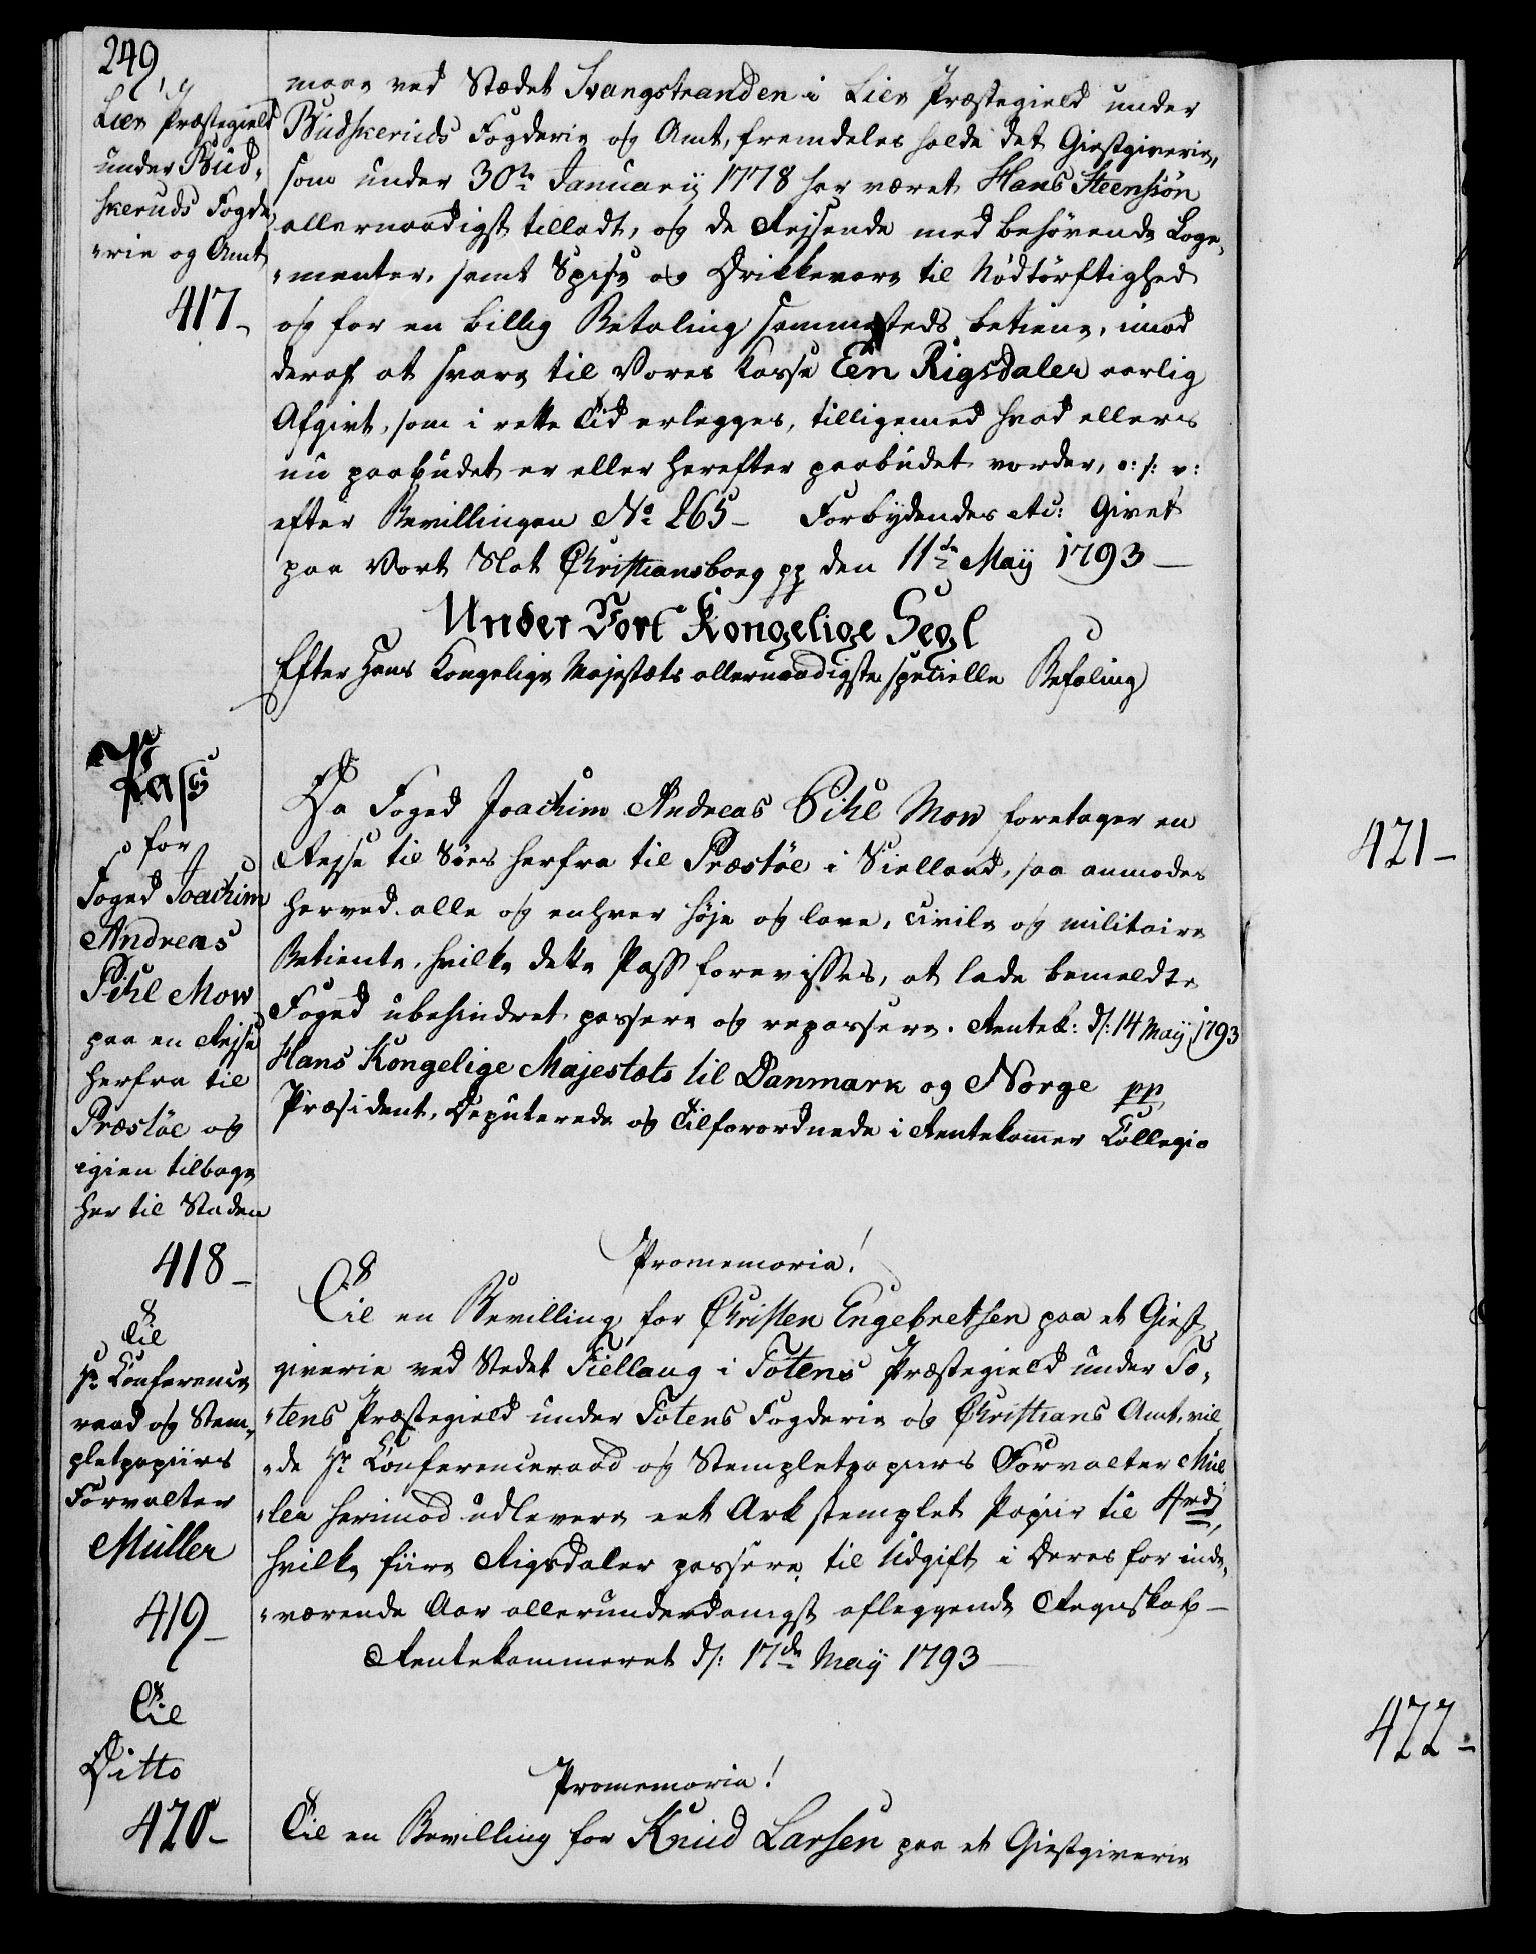 249.
Lier Præstegield
under Bud-
skeruds Fogde
"rie og Amt
417-
maae ved Stædet Svangstranden i Lier Præstegield under
Budskeruds Fogderie og Amt, fremdeles holde det Giestgiverie,
som under 30te Januarij 1778 har været Hans Steensøn
allernaadigst tilladt, og de Rejsende med behøvende Loge-
"menter, samt Spise og Drikkevare til Nødtørftighed
og for en billig Betaling sammesteds betiene, imod
deraf at svare til Vores Kasse Een Rigsdaler aarlig
Afgivt, som i rette Tid erlegges, tilligemed hvad ellers
nu paabudet er eller herefter paabudet vorder, o: s: v:
efter Bevillingen No 265- Forbydendes etc: Givet
paa Vort Slot Christiansborg pp den 11te Maij 1793-
Under Vort Kongelige Segl
Efter Hans Kongelige Majestæts allernaadigste specielle Befaling
Pass
for
Foged Joachim
Andreas
Pihl Mow
paa en Rejse
herfra til
Præstöe og
igien tilbage
her til Staden
418-
Da Foged Joachim Andreas Pihl Mow foretager en
Rejse til Søes herfra til Præstöe i Sielland, saa anmodes
herved alle og enhver høje og lave, civile og militaire
Betiente, hvilke dette Pass forevisses, at lade bemeldte
Foged ubehindret passere og repassere. Rentek: d: 14 Maij 1793
Hans Kongelige Majestæts til Danmark og Norge pp
Præsident, Deputerede og Tilforordnede i Rentekamer Collegio
Til
Hr Conference
raad og Stem-
pletpapiirs
Forvalter
Müller
419-
Promemoria!
Til en Bevilling for Christen Engebretsen paa et Giest
giverie ved Stedet Fiellaug i Totens Præstegield under To-
"tens Præstegield under Totens Fogderie og Christians Amt, vil
"de Hr Conferenceraad og Stempletpapiirs Forvalter Mül
"ler herimod udlevere eet Ark stemplet Papiir til 4 rd,
hvilke fiire Rigsdaler passere til Udgift i Deres for inde-
"værende Aar allerunderdanigst afleggende Regnskab-
Rentekammeret d: 17de Maij 1793
Til
Ditto
420-
Promemoria!
Til en Bevilling for Knud Larsen paa et Giestgiverie
421-
422-